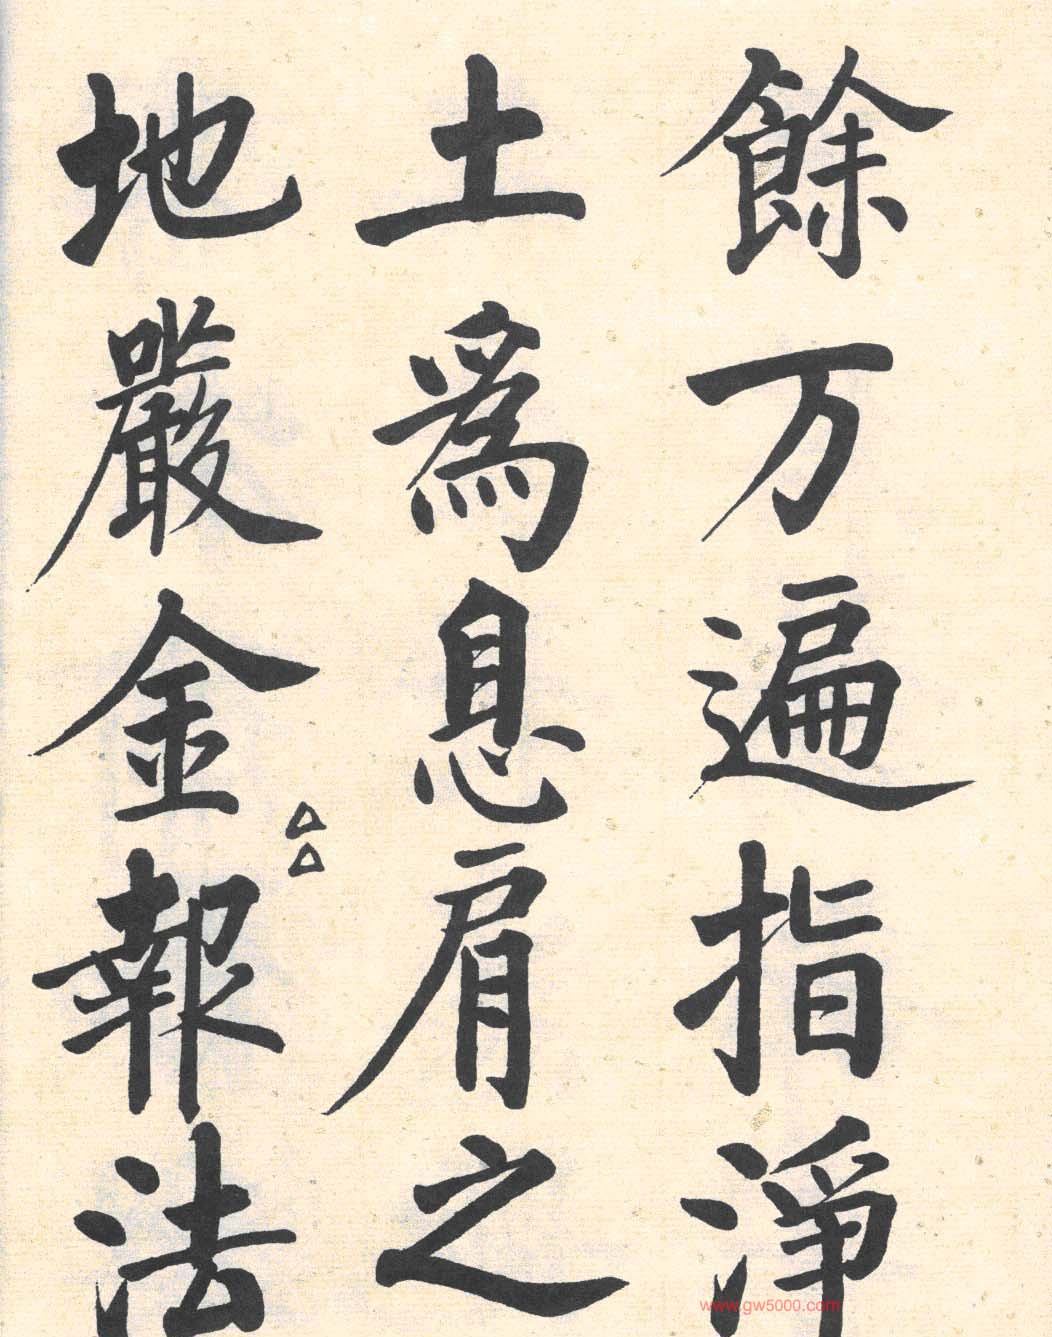 餘万遍指淨
土爲息肩之
地嚴金報法
www.gw5000.com